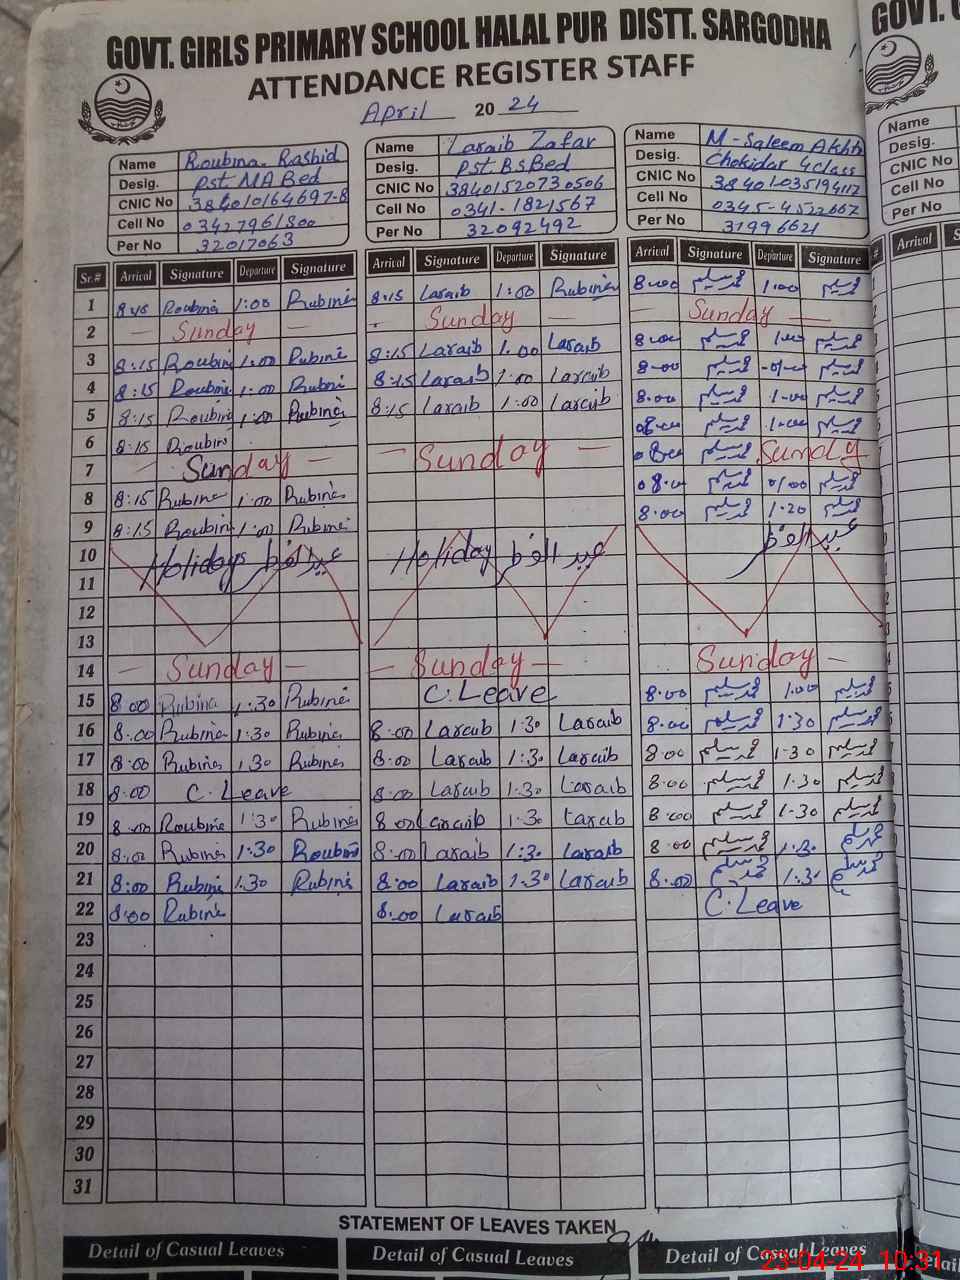 GOVT. GIRLS PRIMARY SCHOOL HALAL PUR DISTT. SARGODHA
ATTENDANCE REGISTER STAFF
April 2024
Name Roubina Rashid Name Laraib Zafar Name M-Saleem Akhtr
Desig. Pst MA Bed Desig. Pst BsBed Desig. Chokidar 4class
CNIC No CNIC No 38401520730506 CNIC No
Cell No 03427961800 Cell No 0341-1821567 Cell No 0345-4522667
Per No 32017063 Per No 32092492 Per No 31996621
Sr.# Arrival Signature Departure Signature Arrival Signature Departure Signature Arrival Signature Departure Signature
1 8:15 Roubina 1:00 Rubina 8:15 Laraib 1:00 Rubina 8:00 محمد سلیم 1:00 محمد سلیم
2 Sunday Sunday Sunday
3 8:15 Roubin 1:00 Rubine 8:15 Laraib 1:00 Laraib 8:00 محمد سلیم 1:00 محمد سلیم
4 8:15 Roubin 1:00 Rubni 8:15 Laraib 1:00 Laraib 8:00 محمد سلیم محمد سلیم
5 8:15 Roubin 1:00 Rubine 8:15 Laraib 1:00 Laraib 8:00 محمد سلیم 1:00 محمد سلیم
6 8:15 Roubin 08:00 محمد سلیم 1:00 محمد سلیم
7 Sunday Sunday 08:00 محمد سلیم Sunday
8 8:15 Rubine 1:00 Rubine 08:00 محمد سلیم 01:00 محمد سلیم
9 8:15 Roubin 1:00 Rubine 8:00 محمد سلیم 1:20 محمد سلیم
10 Holidays عید الفطر Holiday عید الفطر عید الفطر
11
12
13
14 Sunday Sunday Sunday
15 8:00 Rubina 1:30 Rubine C.Leave 8:00 محمد سلیم 1:00 محمد سلیم
16 8:00 Rubine 1:30 Rubine 8:00 Laraib 1:30 Laraib 8:00 محمد سلیم 1:30 محمد سلیم
17 8:00 Rubine 1:30 Rubine 8:00 Laraib 1:30 Laraib 8:00 محمد سلیم 1:30 محمد سلیم
18 8:00 C.Leave 8:00 Laraib 1:30 Laraib 8:00 محمد سلیم 1:30 محمد سلیم
19 8:00 Roubine 1:30 Rubine 8:00 Laraib 1:30 Laraib 8:00 محمد سلیم 1:30 محمد سلیم
20 8:00 Rubine 1:30 Roubine 8:00 Laraib 1:30 Laraib 8:00 محمد سلیم 1:30 محمد سلیم
21 8:00 Rubine 1:30 Rubine 8:00 Laraib 1:30 Laraib 8:00 محمد سلیم 1:30 محمد سلیم
22 8:00 Rubine 8:00 Laraib C.Leave
23
24
25
26
27
28
29
30
31
STATEMENT OF LEAVES TAKEN
Detail of Casual Leaves Detail of Casual Leaves Detail of Casual Leaves
23-04-24 10:31
GOVT.
Name
Desig.
CNIC No
Cell No
Per No
Arrival